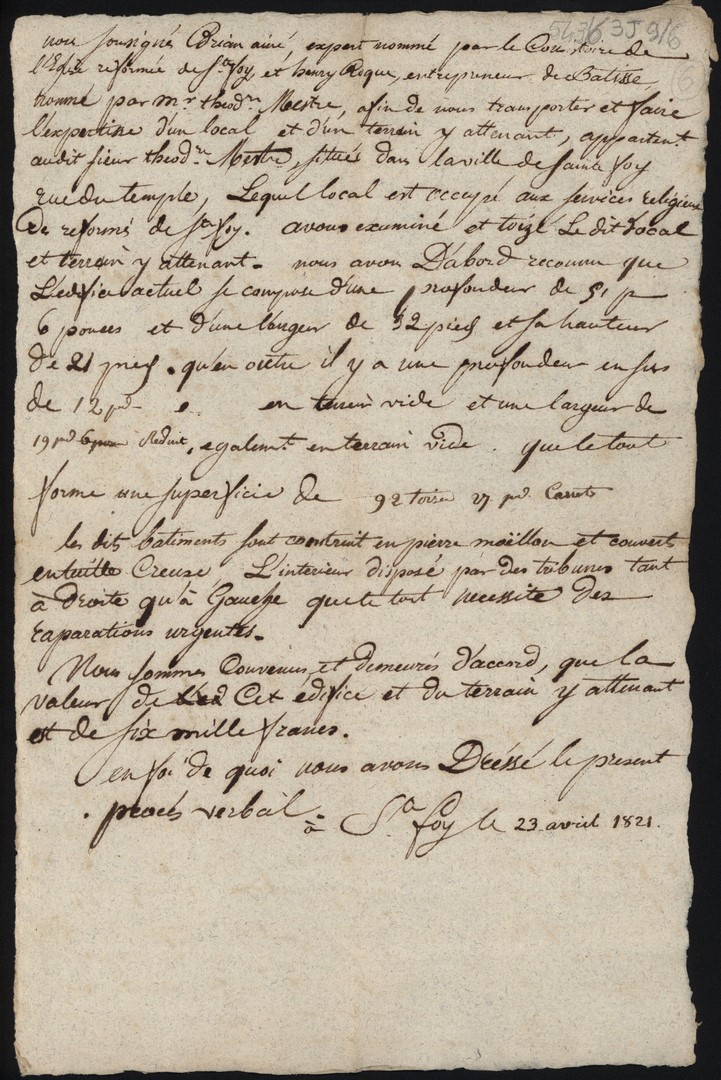 543/6 3J 9/6
nous soussignés Adrian ainé, expert nommé par le Consistoire de
l'Eglise reformée de Ste foy, et henry Roque, entrepreneur de Batisse,
nommé par mr. theodre Mestre, afin de nous transporter et faire
l'expertise d'un local et d'un terrein y attenant, appartent.
audit sieur theodre Mestre, situés dans la ville de Sainte foy
rue du temple, Lequel local est occupé aux services religieux
De reformés de Ste foy. avons examiné et toizé Le dit Local
et terrein y attenant. nous avons D'abord reconnu que
L'edifice actuel se compose d'une profondeur de 51 p
6 pouces et d'une largeur de 32 pieds et sa hauteur
de 21 pieds. qu'en outre il y a une profondeur en sus
de 12 pds en terrein vide et une largeur de
19 pd 6 Reduit, egalemt. en terrein vide. que le tout
forme une superficie de 92 toises 27 pds Carrés
les dits batiments sont construit en pierre moëllon et couverts
en tuille Creuse L'interieur disposé par des tribunes tant
à Droite qu'à Gauche que le tout necessite des
raparations urgentes.
Nous sommes Convenus et demeurés D'accord, que la
valeur de Cet edifice et du terrein y attenant
est de six mille francs.
en foi de quoi nous avons Dréssé le present
procés verbail
à Ste foy le 23 avril 1821.